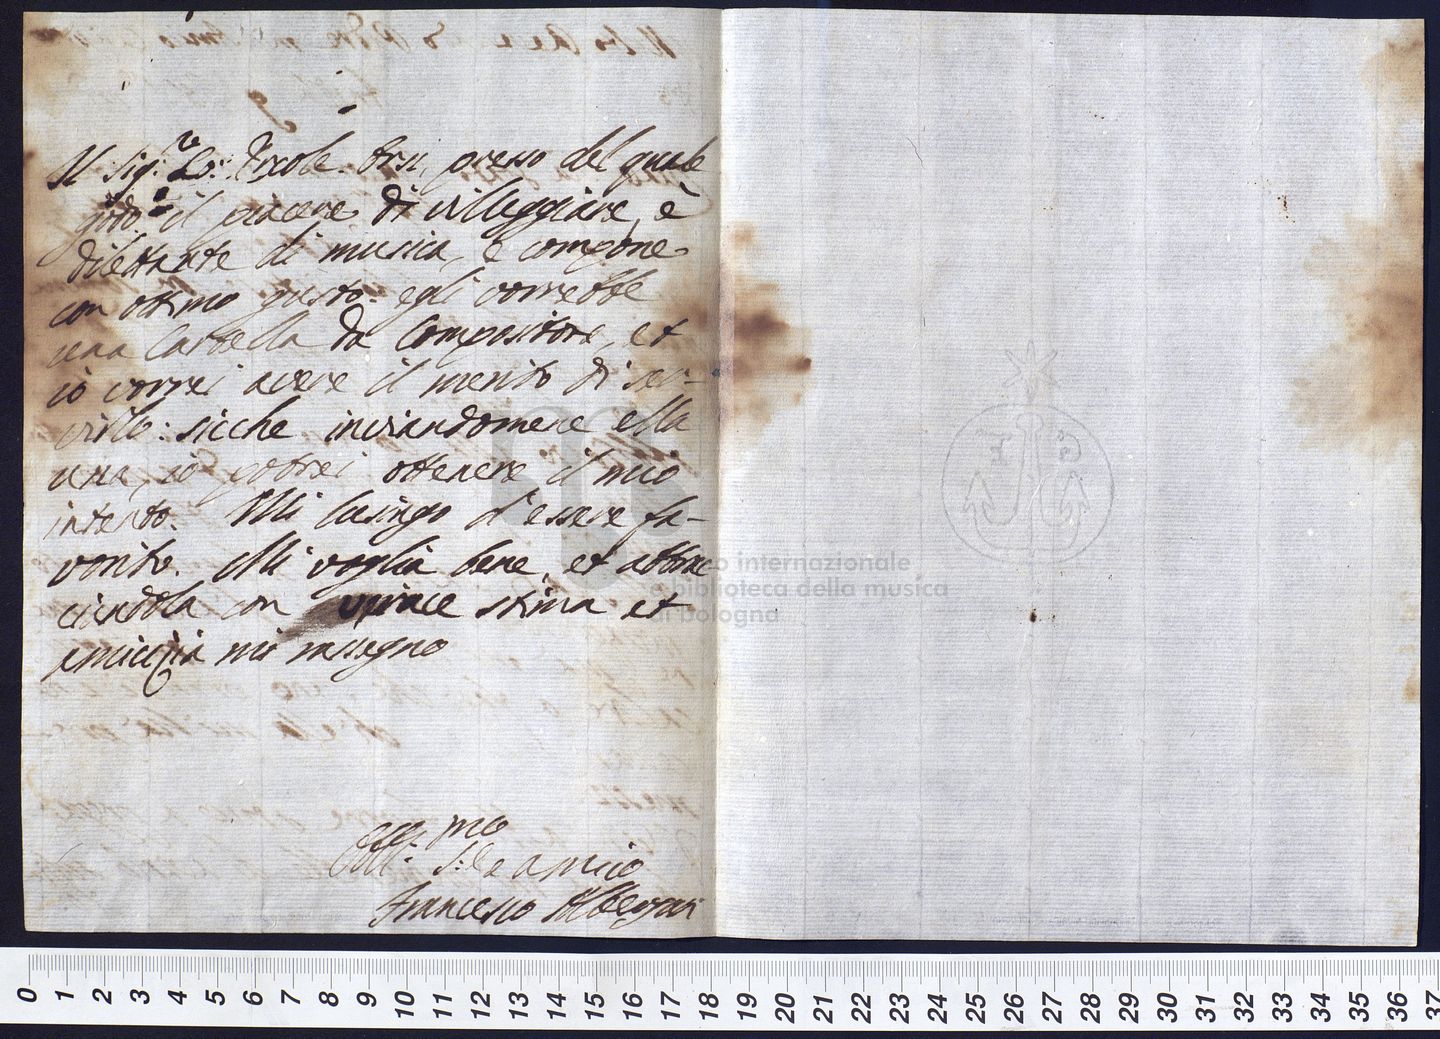 Il Sig.re Co: Ercole Orsi, presso del quale
godo il piacere di villeggiare, è
dilettante di musica, e compone
con ottimo gusto. egli vorrebbe
una Cartella da Compositore, et
io vorrei avere il merito di ser-
virlo: sicche inviandomene ella
una, io potrei ottenere il mio
intento. Mi lusingo d'essere fa-
vorito. Mi voglia bene, et abbrac
ciandola con verace stima et
amicizia mi rassegno
Obbl:mo S:re e amico
Francesco Albergati
internazionale
biblioteca della musica
di bologna
0 1 2 3 4 5 6 7 8 9 10 11 12 13 14 15 16 17 18 19 20 21 22 23 24 25 26 27 28 29 30 31 32 33 34 35 36 37